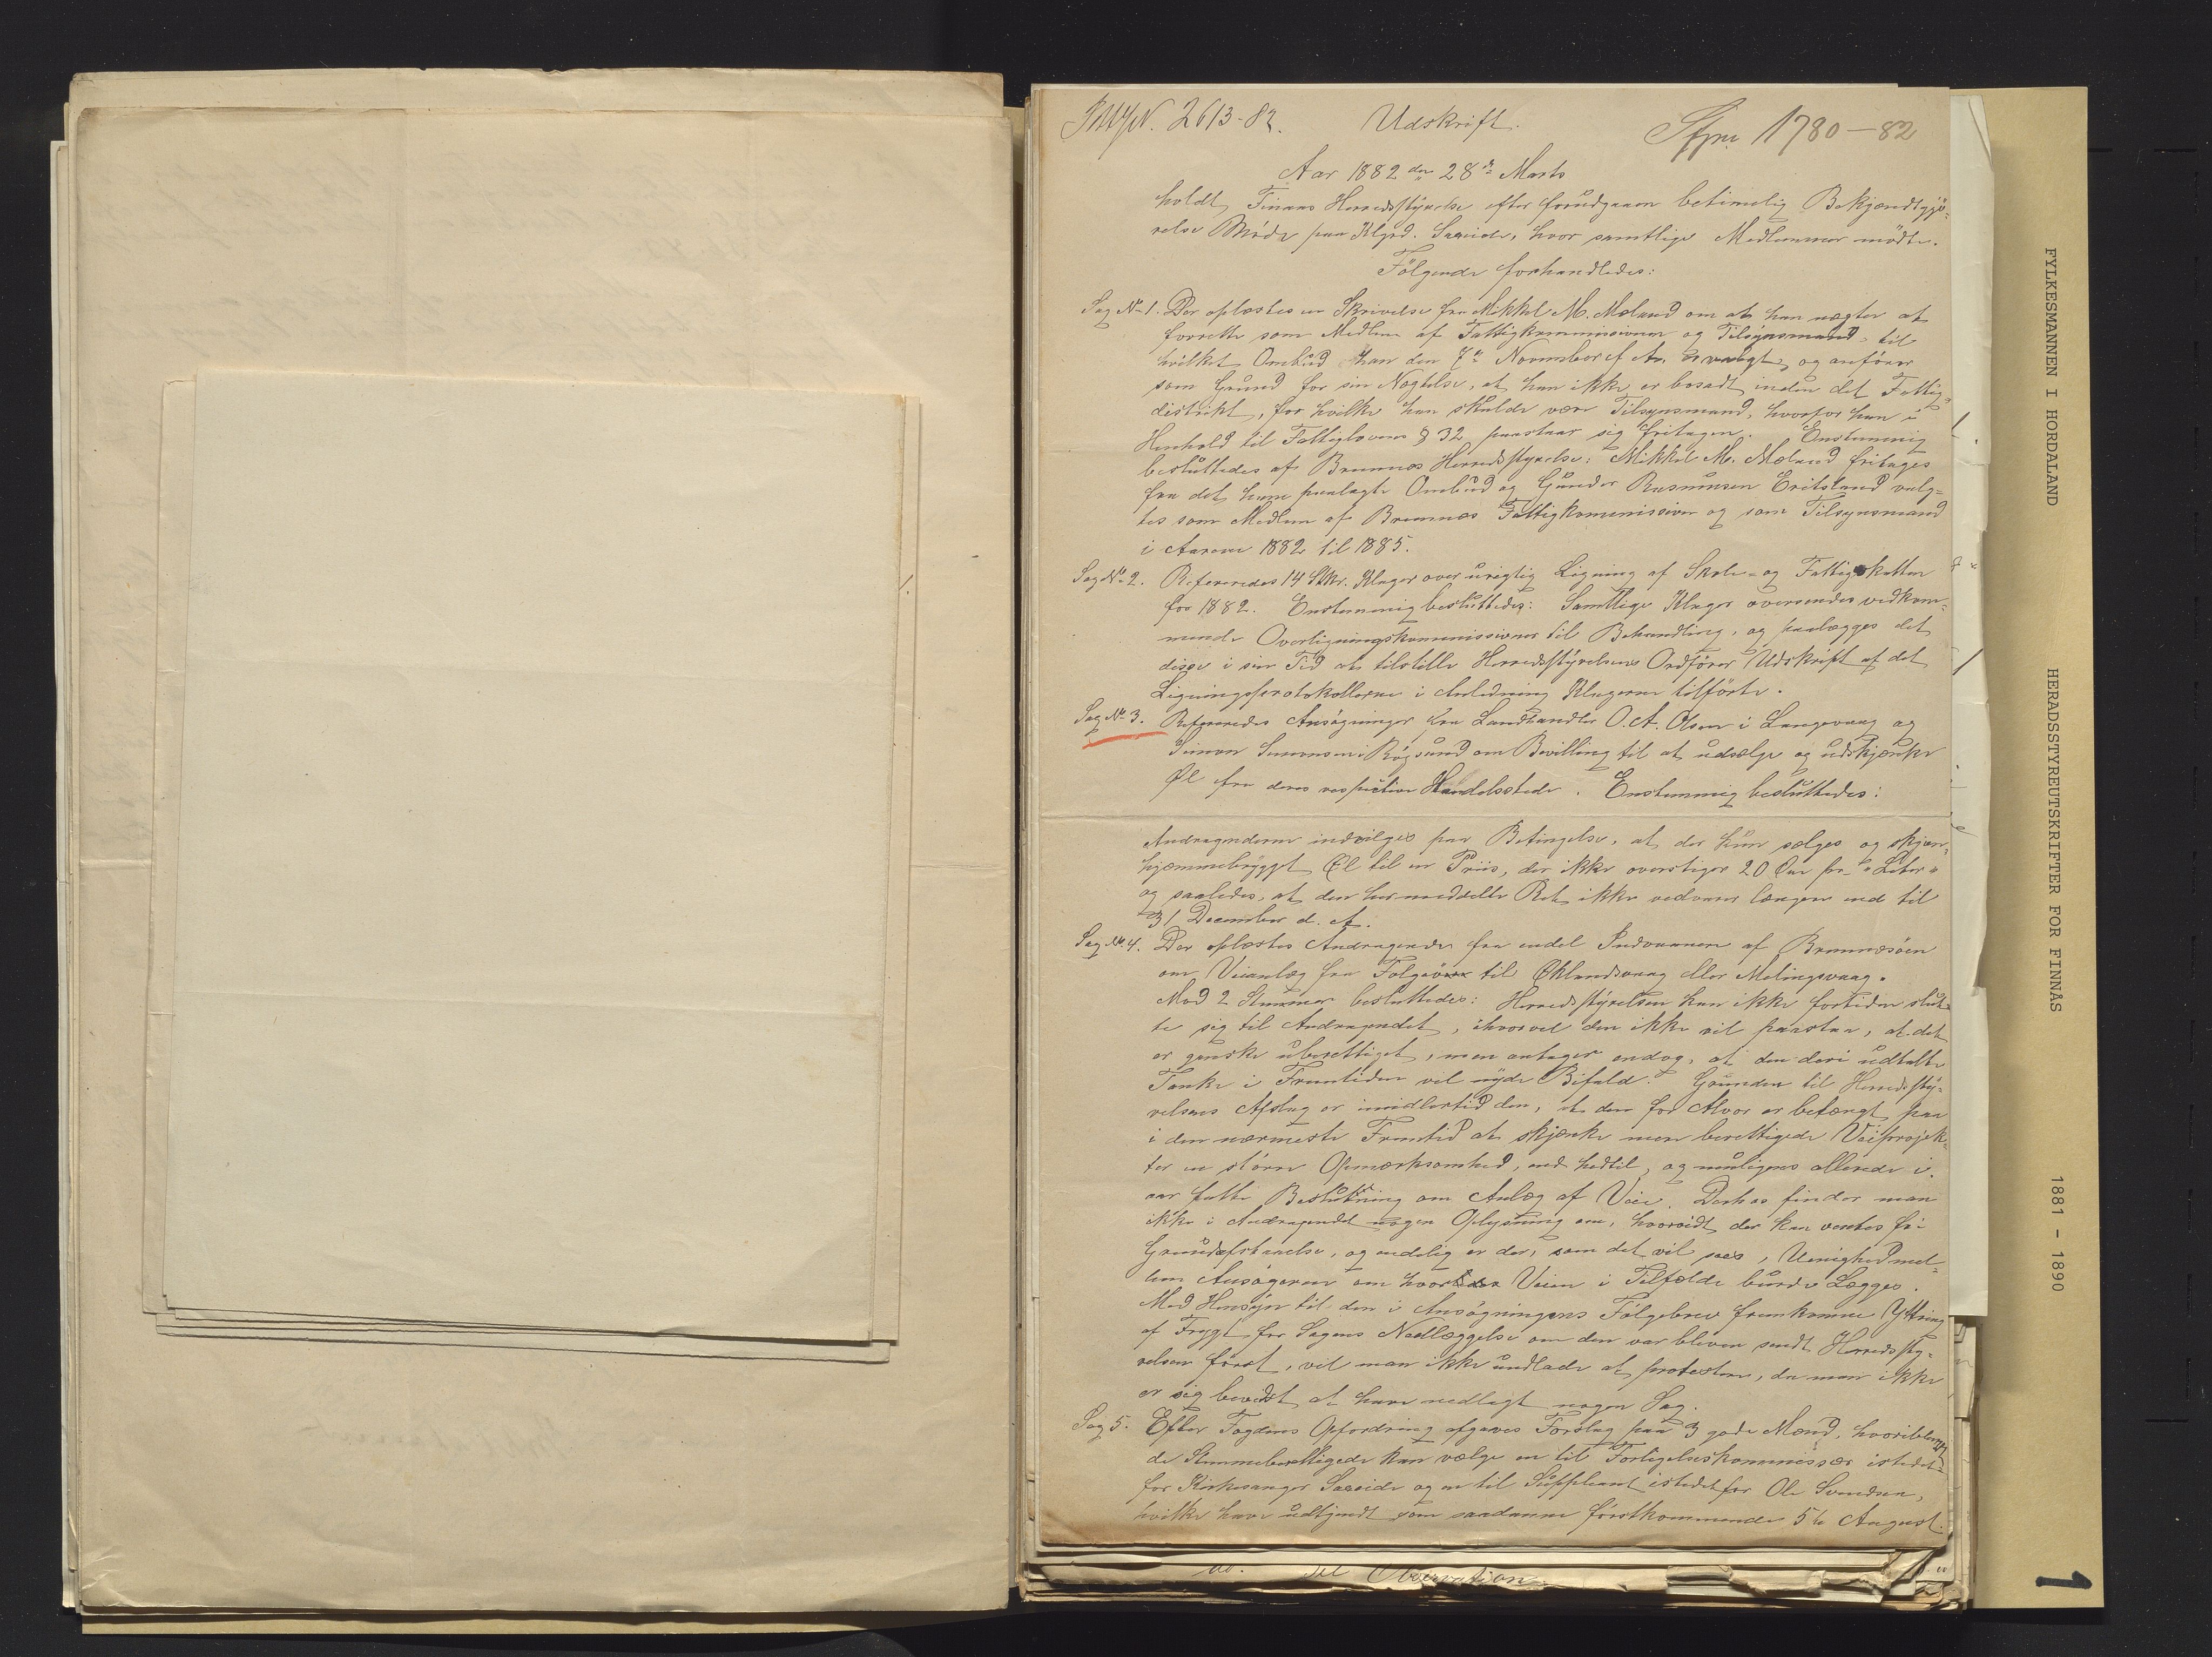 2613-82. Udskrift. 1780-82
Aar 1882 den 28de Marts
holdt Finaas Herredsstyrelse efter forudgaaen betimelig Bekjendtgjö-
relse Möde paa Klgrd. Saeeide, hvor samtlige Medlemmer mödte.
Fölgende forhandledes:
Sag No 1. Der oplæstes en Skrivelse fra Mikkel M. Mæland om at han nægter at
forrette som Medlem af Fattigkommissionen og Tilsynsmand - til
hvilket Ombud han den 7de November f. Ar. er valgt, og anförer
som Grund for sin Nægtelse, at han ikke er bosadt inden det Fattig-
distrikt, for hvilke han skulde være Tilsynsmand, hvorfor han i
Henhold til Fattiglovens § 32 paastaar sig fritagen. Enstemmig
besluttedes af Bremnes Herredsstyrelse: Mikkel M. Mæland fritages
fra det ham paalagte Ombud og Gunder Rasmusen Eritsland valg-
tes som Medlem af Bremnæs Fattigkommission og som Tilsynsmand
i Aarene 1882 til 1885.
Sag No 2. Refereredes 14 Stkr. Klager over urigtig Ligning af Skole- og Fattigskatten
for 1882. Enstemmig besluttedes: Samtlige Klager oversendes vedkom-
mende Overligningskommissioner til Behandling, og paalægges det
disse i sin Tid at tilstille Herredsstyrelsens Ordförer Udskrift af det
Ligningsprotokollerne i Anledning Klagerne tilförte.
Sag No 3. Refereredes Ansögninger fra Landhandler O. A. Olsen i Langevaag og
Simon Simonsen i Rögsund om Bevilling til at udsælge og udskjænke
Øl fra deres respective Handelssteder. Enstemmig besluttedes:
Andragenderne indvilges paa Betingelse, at der kun sælges og skjæn-
hjemmebrygget Øl til en Priis, der ikke overstiger 20 Øre pr. "Liter"
og saaledes, at den her meddelte Ret ikke vedvarer længere end til
31 December d. A.
Sag No. 4. Der oplæstes Andragende fra endel Indvaanere af Bremnesöen
om Veianlæg fra Folgeröen til Øklandsvaag eller Melingsvaag.
Mod 2 Stemmer besluttedes: Herredsstyrelsen kan ikke fortiden slut-
te sig til Andragendet, ihvorvel den ikke vil paastaa, at det
er ganske uberettiget, men antager endog, at den deri udtalte
Tanke i Fremtiden vil nyde Bifald. Grunden til Herredssty-
relsens Afslag er imidlertid den, at den for Alvor er betænkt paa
i den nærmeste Fremtid at skjænke mere berettigede Veiprojek-
ter en större Opmærksomhed, end hidtil, og muligens allerede i
aar fatte Beslutning om Anlæg af Veie. Derhos finder man
ikke i Andragendet nogen Oplysning om, hvorvidt der kan ventes fri
Grundafstaaelse, og endelig er der, som det vil sees, Uenighed mel-
lem Ansögerne om hvor Veien i Tilfælde burde Lægges.
Med Hensyn til den i Ansögningens Fölgebrev fremkomne Yttring
af Frygt for Sagens Nedlæggelse om den var bleven sendt Herredssty-
relsen först, vil man ikke undlade at protestere, da man ikke
er sig bevidst at have nedlagt nogen Sag.
Sag 5. Efter Fogdens Opfordring afgaves Forslag paa 3 gode Mænd, hvoriblandt
de Stemmeberettigede kan vælge en til Forligelseskommissær istedet-
for Kirkesanger Saeeide og en til Suppleant istedetfor Ole Svendsen,
hvilke have udtjendt som saadanne förstkommende 5te August.
til Observation
FYLKESMANNEN I HORDALAND HERADSSTYREUTSKRIFTER FOR FINNÅS 1881 - 1890 1